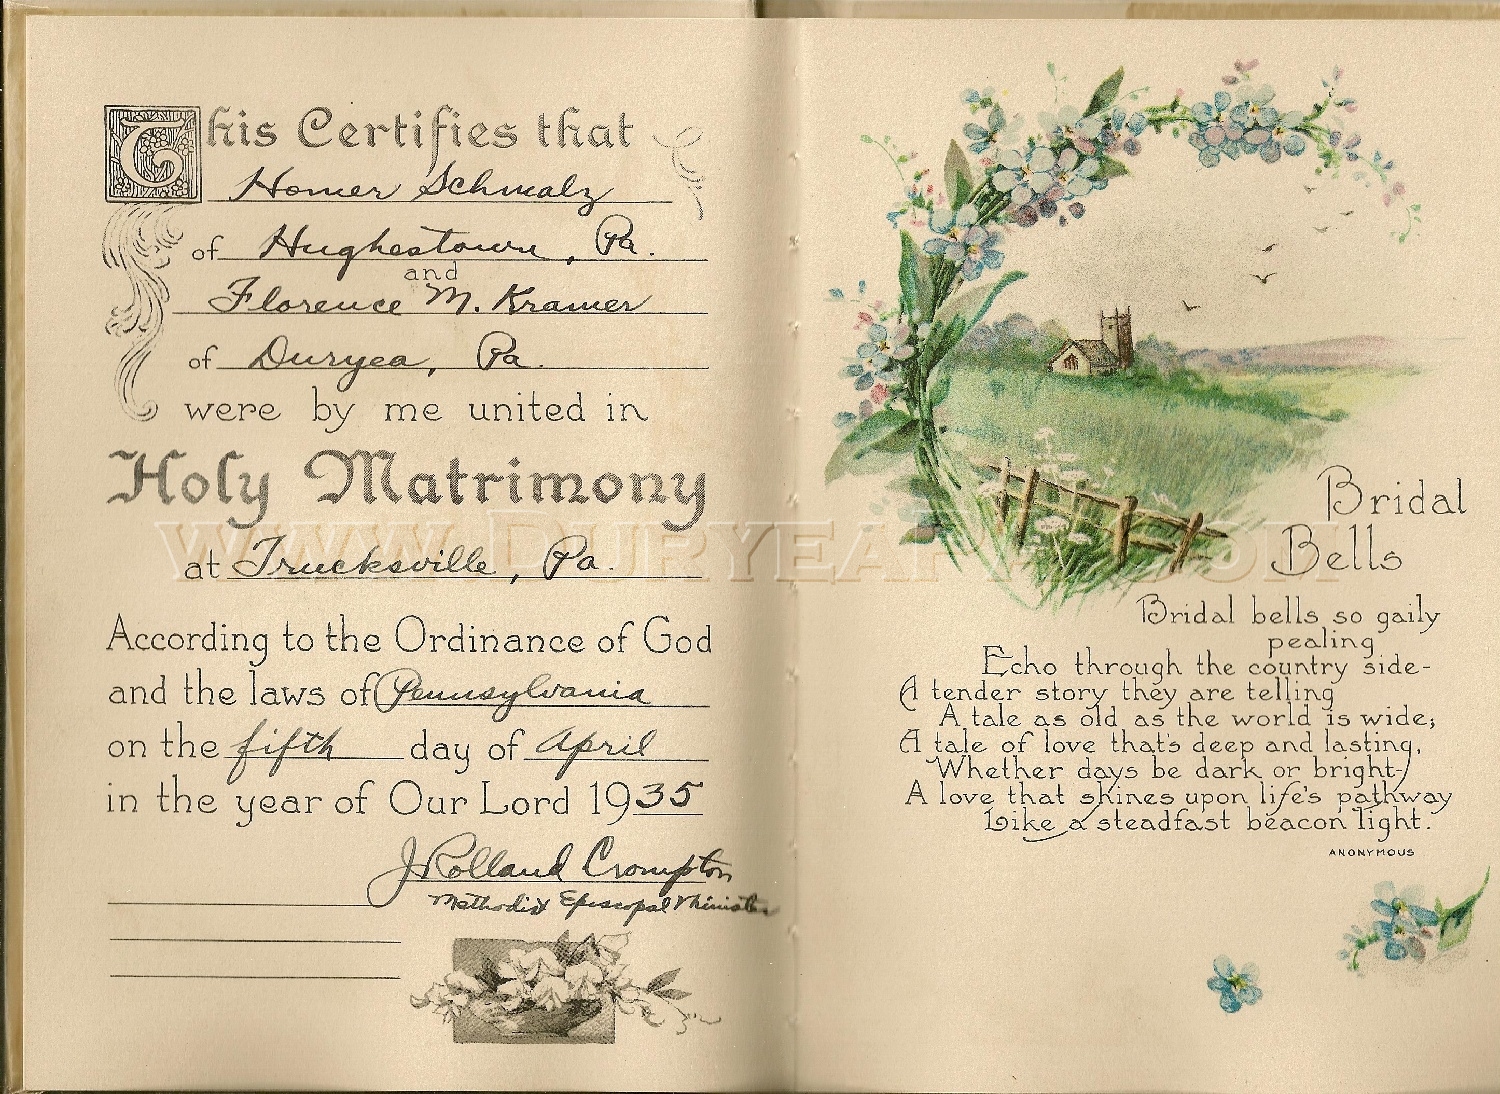 This Certifies that
Homer Schmalz
of Hughestown, Pa.
and
Florence M. Kramer
of Duryea, Pa.
were by me united in
Holy Matrimony
at Trucksville, Pa.
According to the Ordinance of God
and the laws of Pennsylvania
on the fifth day of April
in the year of Our Lord 1935
J Rolland Crompton
Methodist Episcopal Minister
www.DuryeaPA.com
Bridal
Bells
Bridal bells so gaily
pealing
Echo through the country side-
A tender story they are telling
A tale as old as the world is wide;
A tale of love that's deep and lasting,
Whether days be dark or bright-
A love that shines upon life's pathway
Like a steadfast beacon light.
ANONYMOUS